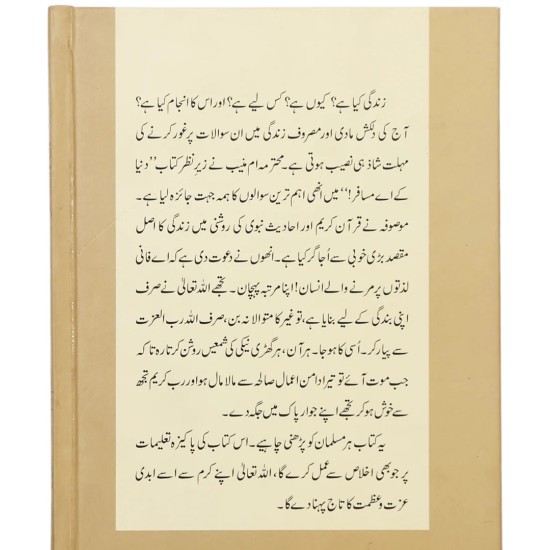 زندگی کیا ہے؟ کیوں ہے؟ کس لیے ہے؟ اور اس کا انجام کیا ہے؟
آج کی دلکش مادی اور مصروف زندگی میں ان سوالات پر غور کرنے کی
مہلت شاذ ہی نصیب ہوتی ہے۔ محترمہ ام منیب نے زیر نظر کتاب ’’دنیا
کے اے مسافر!‘‘ میں انھی اہم ترین سوالوں کا ہمہ جہت جائزہ لیا ہے۔
موصوفہ نے قرآن کریم اور احادیث نبوی کی روشنی میں زندگی کا اصل
مقصد بڑی خوبی سے اُجاگر کیا ہے۔ انھوں نے دعوت دی ہے کہ اے فانی
لذتوں پر مرنے والے انسان! اپنا مرتبہ پہچان۔ تجھے اللہ تعالیٰ نے صرف
اپنی بندگی کے لیے بنایا ہے، تو غیر کا متوالا نہ بن، صرف اللہ رب العزت
سے پیار کر۔ اُسی کا ہو جا۔ ہر آن، ہر گھڑی نیکی کی شمعیں روشن کرتا رہ تاکہ
جب موت آئے تو تیرا دامن اعمال صالحہ سے مالا مال ہو اور رب کریم تجھ
سے خوش ہو کر تجھے اپنے جوار پاک میں جگہ دے۔
یہ کتاب ہر مسلمان کو پڑھنی چاہیے۔ اس کتاب کی پاکیزہ تعلیمات
پر جو بھی اخلاص سے عمل کرے گا، اللہ تعالیٰ اپنے کرم سے اسے ابدی
عزت و عظمت کا تاج پہنا دے گا۔